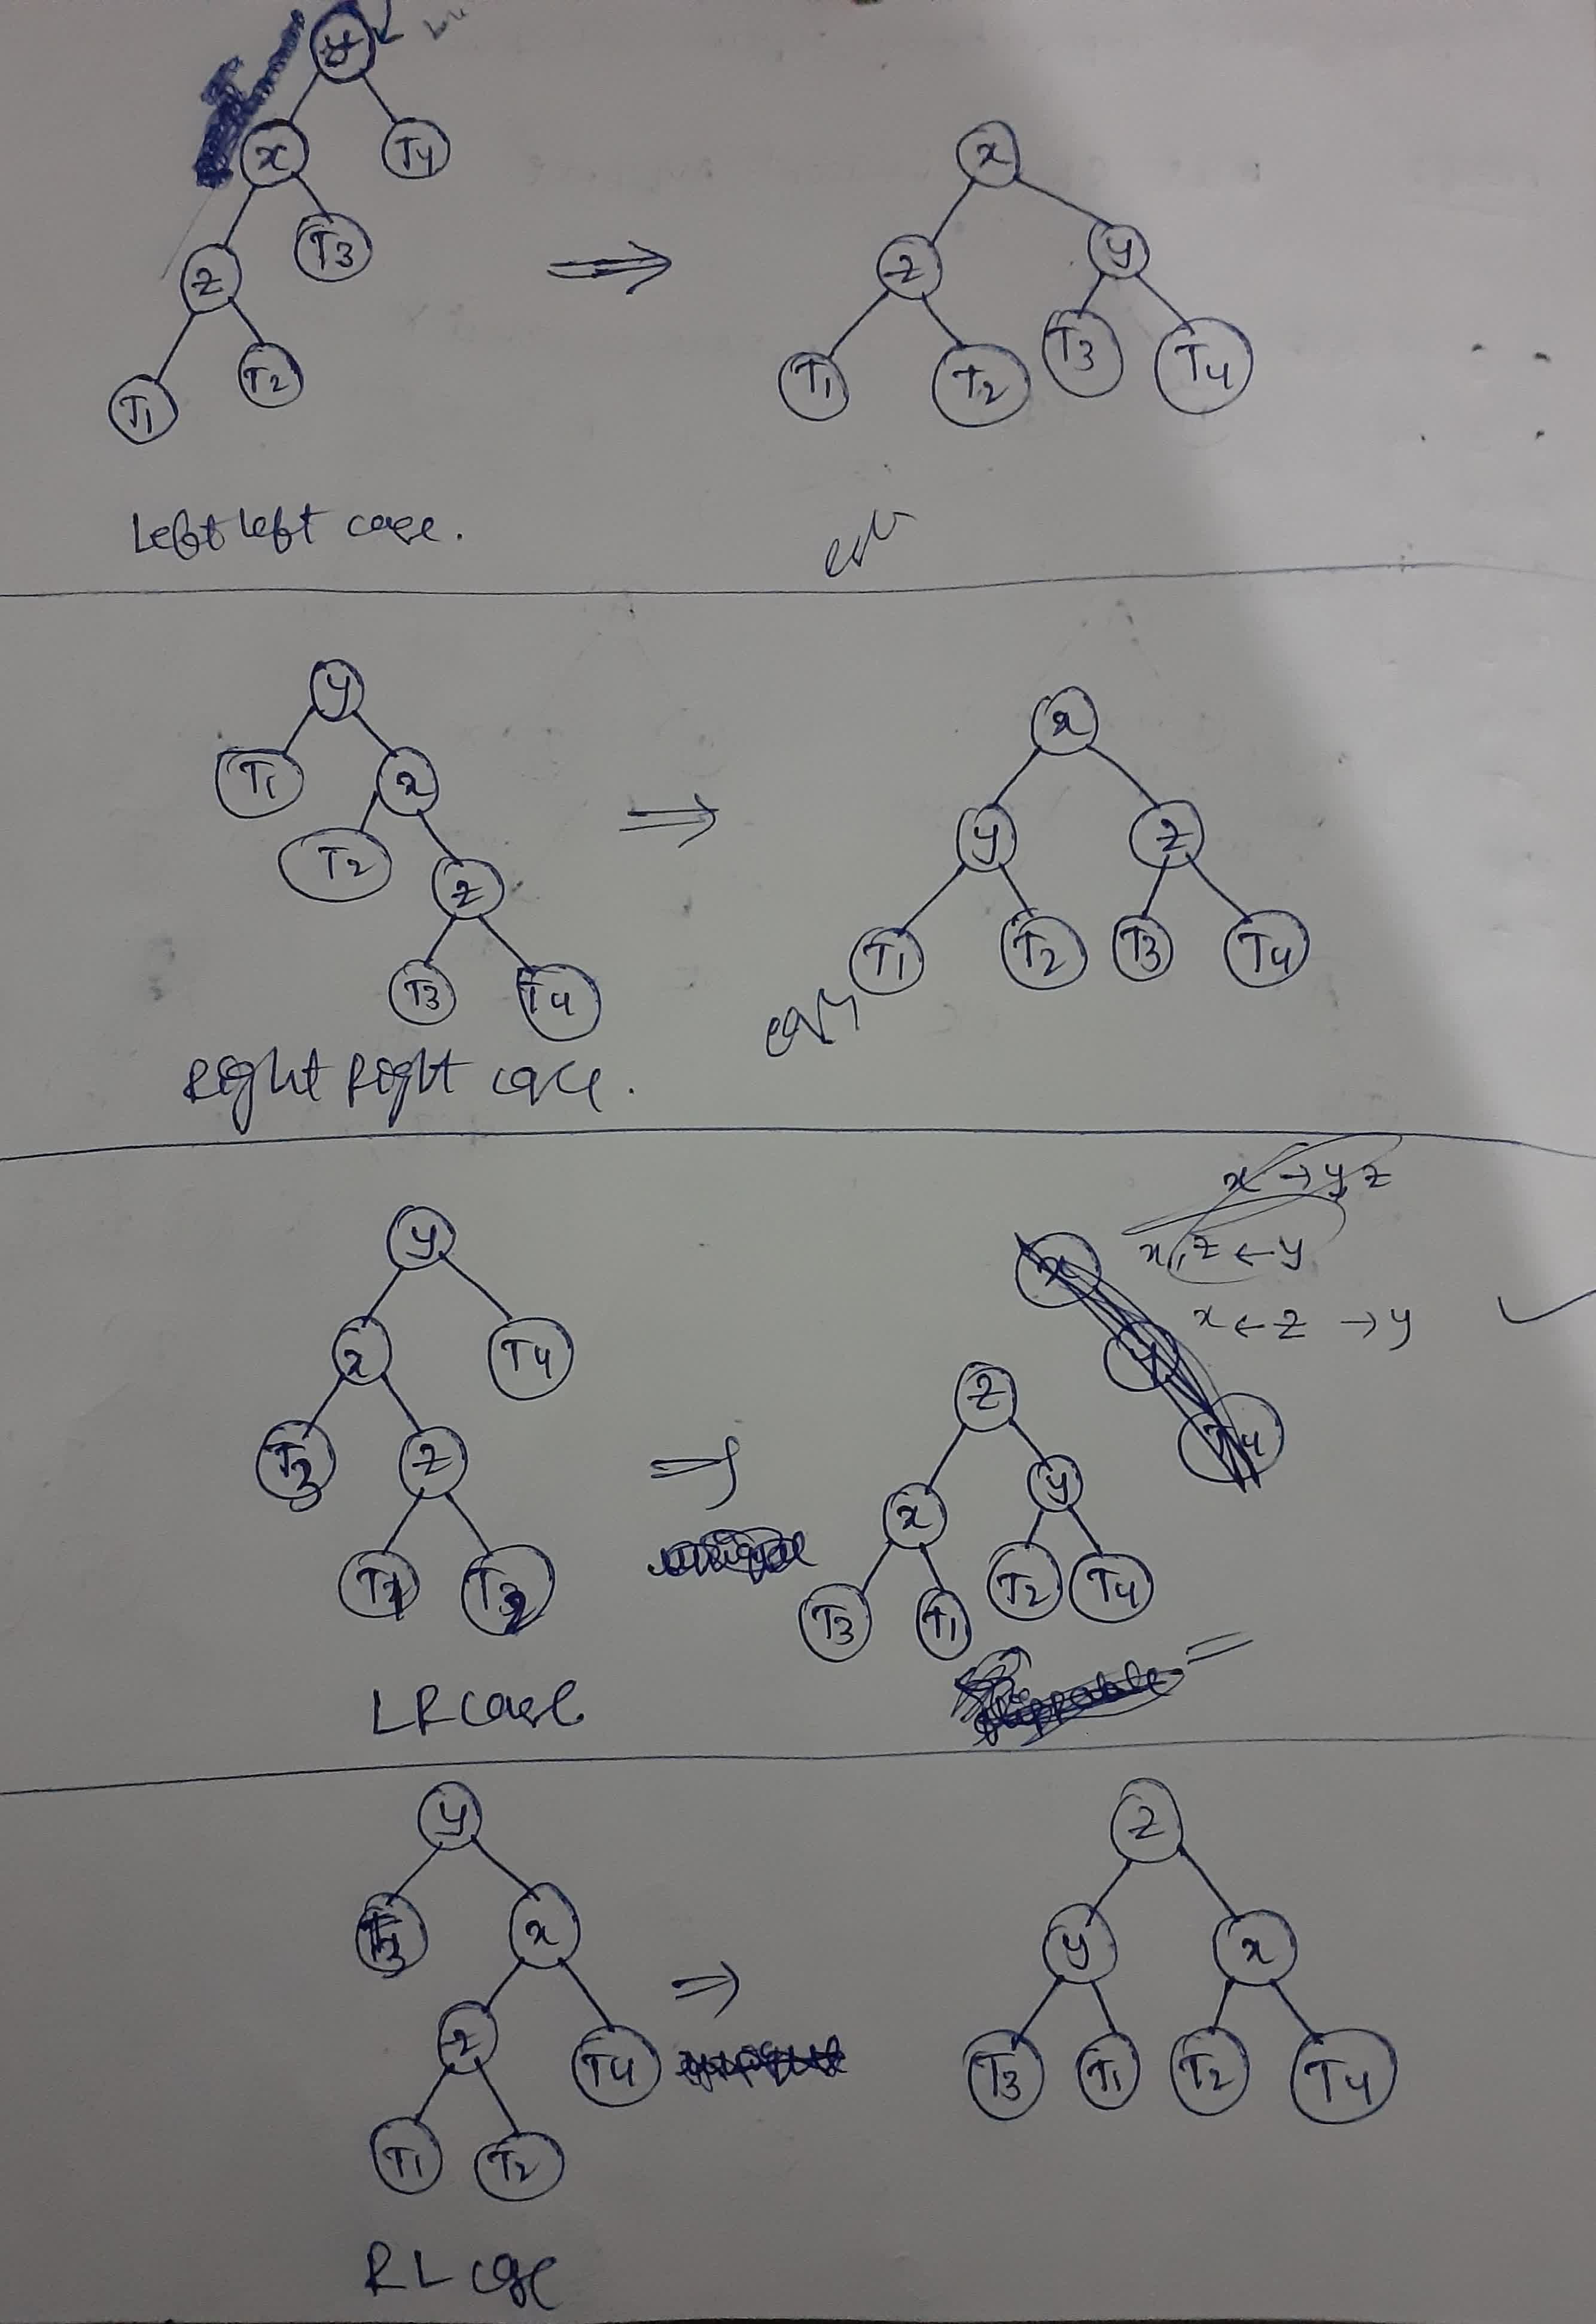 y
x T4
z T3
T1 T2
⇒
x
z y
T1 T2 T3 T4
Left left case.
y
T1 x
T2 z
T3 T4
⇒
x
y z
T1 T2 T3 T4
easy
Right Right case.
x → y, z
x, z ← y
x ← z → y
y
x T4
T3 z
T1 T2
⇒
z
x y
T3 T1 T2 T4
LR case
y
T3 x
z T4
T1 T2
⇒
z
y x
T3 T1 T2 T4
RL case